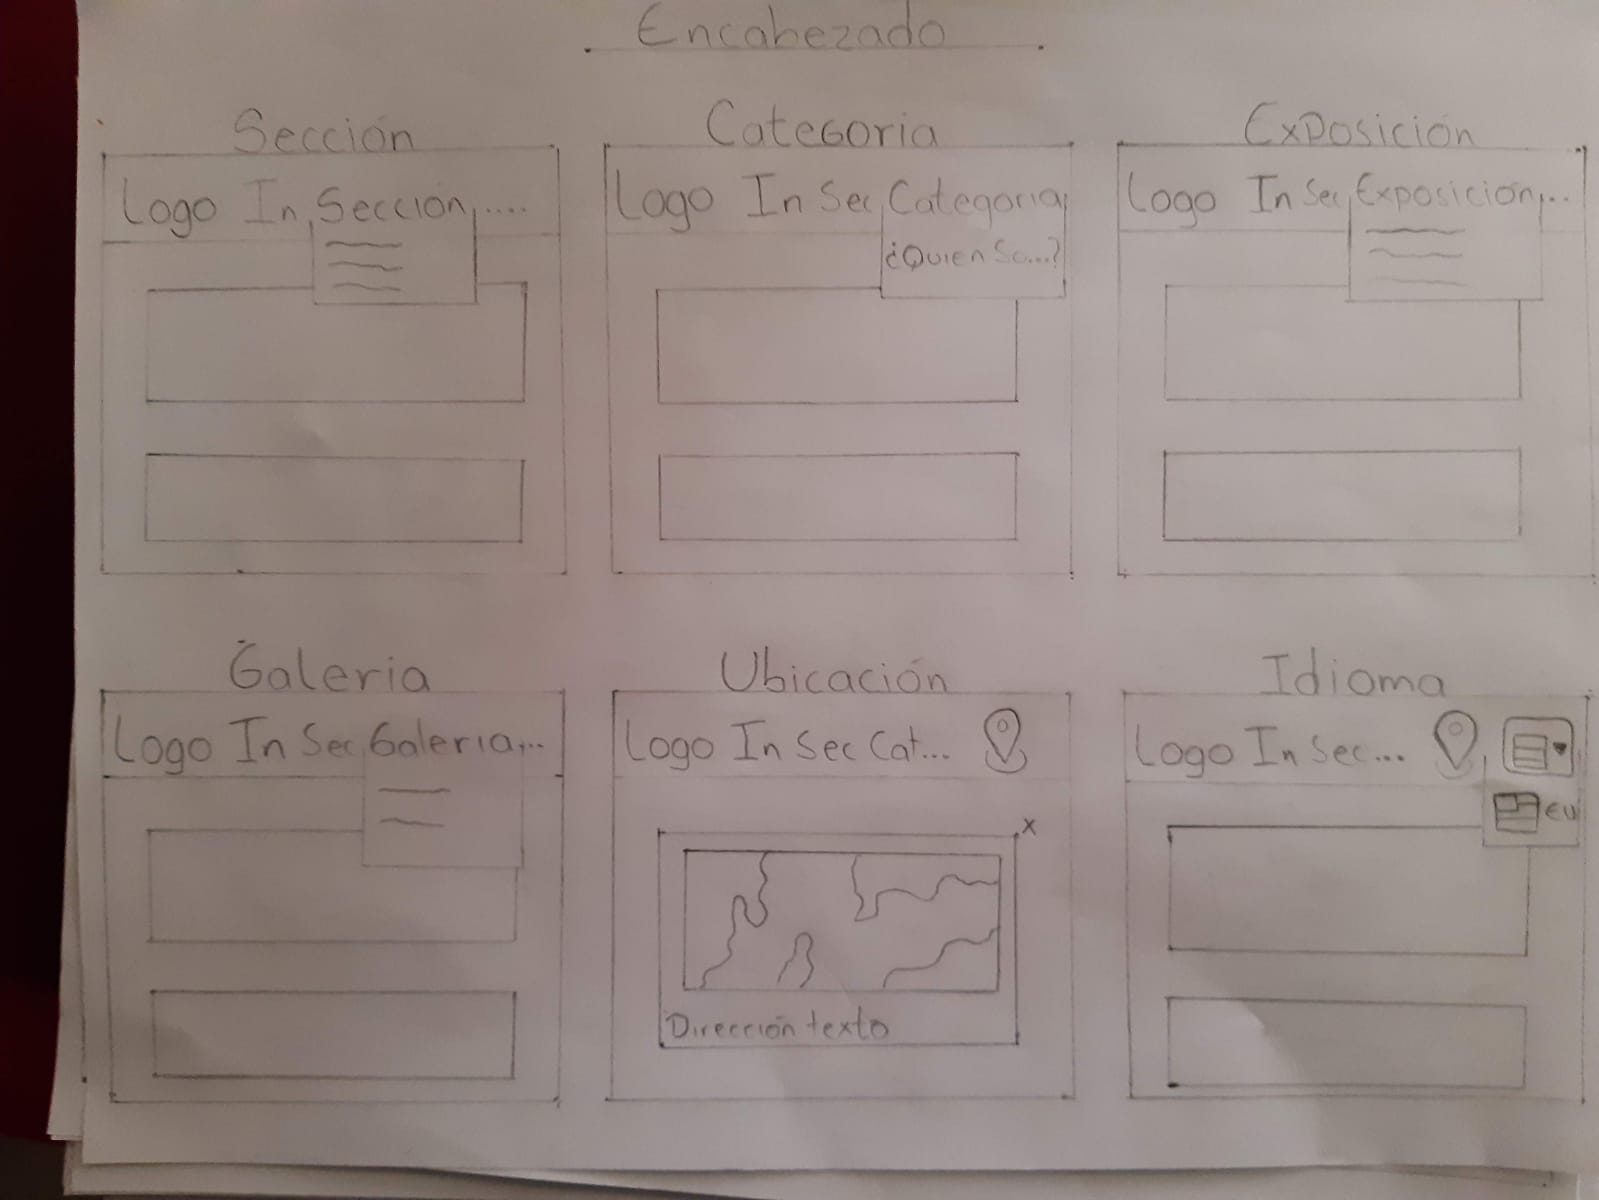 Encabezado
Sección
Logo In Sección, ....
Categoria
Logo In Sec Categoria,
¿Quien So...?
Exposición
Logo In Sec Exposición,...
Galeria
Logo In Sec Galeria,...
Ubicación
Logo In Sec Cat...
x
Dirección texto
Idioma
Logo In Sec...
EU